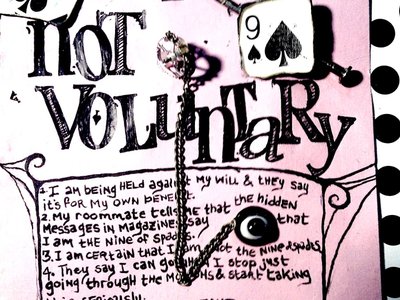 NOT
VOLUNTARY
9
1. I am being HELD against my will & they say
it's for my own benefit.
2. My roommate tells me that the hidden
messages in magazines say that
I am the nine of spades.
3. I am certain that I am not the nine of spades.
4. They say I can go when I stop just
going through the & start taking